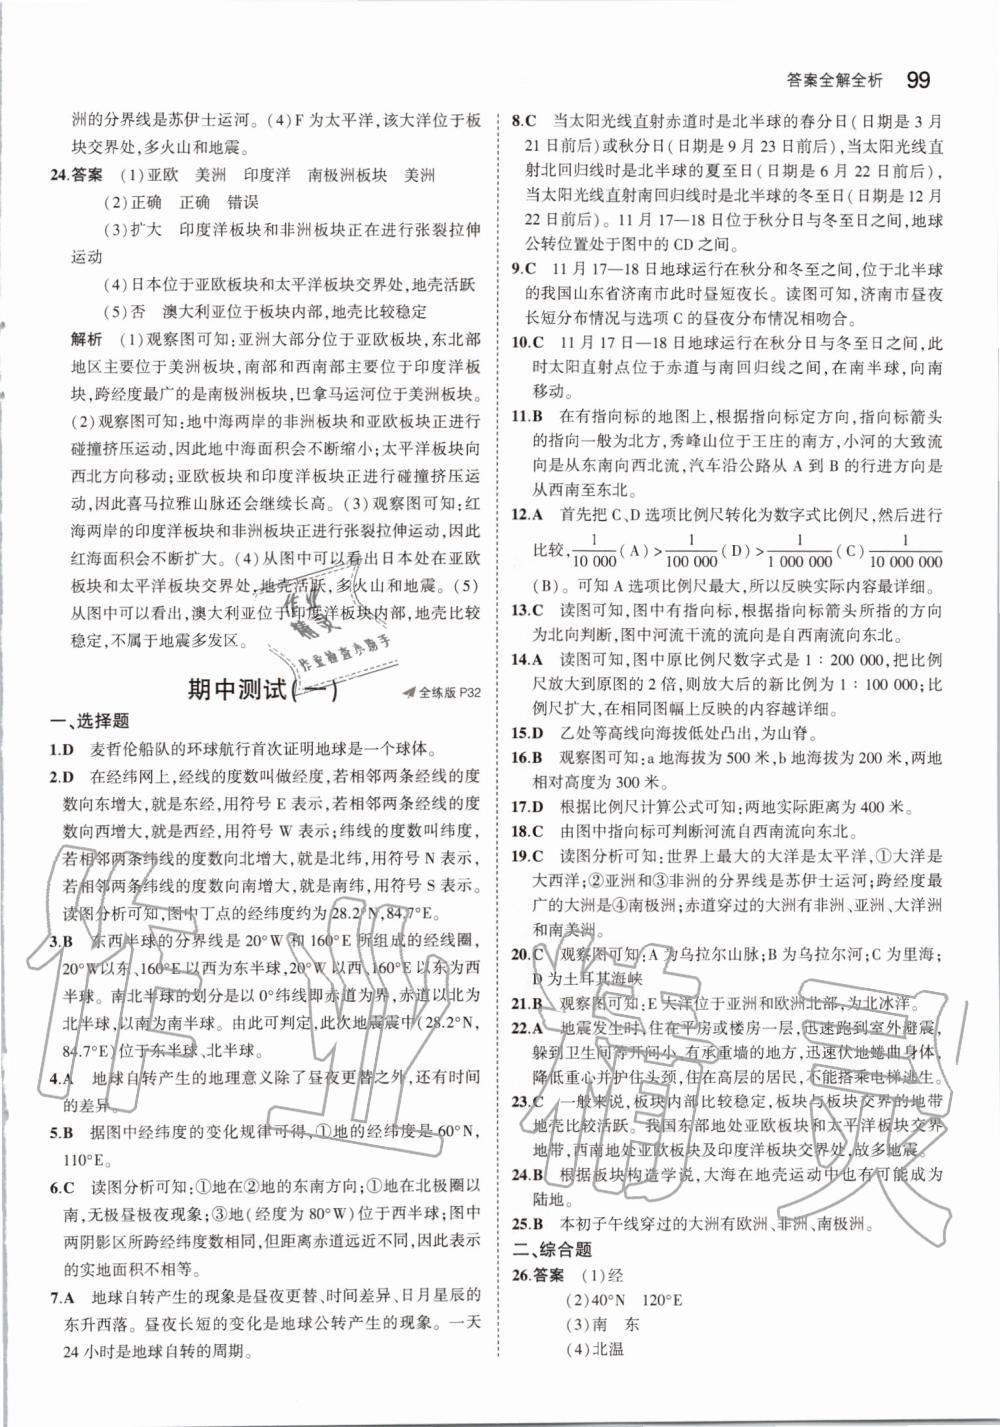 答案全解全析 99
洲的分界线是苏伊士运河。(4)F 为太平洋,该大洋位于板
块交界处,多火山和地震。
24.答案 (1)亚欧 美洲 印度洋 南极洲板块 美洲
(2)正确 正确 错误
(3)扩大 印度洋板块和非洲板块正在进行张裂拉伸
运动
(4)日本位于亚欧板块和太平洋板块交界处,地壳活跃
(5)否 澳大利亚位于板块内部,地壳比较稳定
解析 (1)观察图可知:亚洲大部分位于亚欧板块,东北部
地区主要位于美洲板块,南部和西南部主要位于印度洋板
块,跨经度最广的是南极洲板块,巴拿马运河是美洲板块。
(2)观察图可知:地中海两岸的非洲板块和亚欧板块进行
碰撞挤压运动,因此地中海面积会不断缩小;太平洋板块向
西北方向移动;亚欧板块和印度洋板块进行碰撞挤压运
动,因此喜马拉雅山脉还会继续长高。(3)观察图可知:红
海两岸的印度洋板块和非洲板块进行张裂拉伸运动,因此
红海面积会不断扩大。(4)从图中可以看出日本处在亚欧
板块和太平洋板块交界处,地壳活跃,多火山和地震。(5)
从图中可以看出,澳大利亚位于印度洋板块内部,地壳比较
稳定,不属于地震多发区。
期中测试(一) 全练版 P32
一、选择题
1.D 麦哲伦船队的环球航行首次证明地球是一个球体。
2.D 在经纬网上,经线的度数叫做经度,若相邻两条经线的度
数向东增大,就是东经,用符号 E 表示,若相邻两条经线的度
数向西增大,就是西经,用符号 W 表示;纬线的度数叫纬度,
若相邻两条纬线的度数向北增大,就是北纬,用符号 N 表示,
若相邻两条纬线的度数向南增大,就是南纬,用符号 S 表示。
读图分析可知,图中丁点的经纬度约为 28.2°N,84.7°E。
3.B 东西半球的分界线是 20°W 和 160°E 所组成的经线圈,
20°W以东、160°E 以西为东半球,20°W 以西、160°E 以东为
西半球。南北半球的划分是以 0°纬线即赤道为界,赤道以北为
北半球,以南为南半球。由此可判定,此次地震震中(28.2°N,
84.7°E)位于东半球、北半球。
4.A 地球自转产生的地理意义除了昼夜更替之外,还有时间
的差异。
5.B 据图中经纬度的变化规律可得,①地的经纬度是 60°N,
110°E。
6.C 读图分析可知:①地在②地的东南方向;①地在北极圈以
南,无极昼极夜现象;③地(经度为 80°W)位于西半球;图中
两阴影区所跨经纬度数相同,但距离赤道远近不同,代表
的实地面积不相等。
7.A 地球自转产生的现象是昼夜更替、时间差异、日月星辰的
东升西落。昼夜长短的变化是地球公转产生的现象。一天
24 小时是地球自转的周期。
8.C 当太阳光线直射赤道时是北半球的春分日(日期是 3 月
21 日前后)或秋分日(日期是 9 月 23 日前后),当太阳光线直
射北回归线时是北半球的夏至日(日期是 6 月 22 日前后),
当太阳光线直射南回归线时是北半球的冬至日(日期是 12 月
22 日前后)。11 月 17—18 日位于秋分日与冬至日之间,地球
公转位置处于图中的 CD 之间。
9.C 11 月 17—18 日地球运行在秋分和冬至之间,位于北半球
的我国山东省济南市此时昼短夜长。读图可知,济南市昼夜
长短分布情况与选项 C 的昼夜分布情况相吻合。
10.C 11 月 17 日—18 日地球运行在秋分日和冬至日之间,此
时太阳直射点位于赤道与南回归线之间,在南半球,向南
移动。
11.B 在有指向标的地图上,根据指向标定方向,指向标箭头
的指向一般为北方,秀峰山位于王庄的南方,小河的大致流
向是从东南向西北流,汽车沿公路从 A 到 B 的行进方向是
从西南至东北。
12.A 首先把 C、D 选项比例尺转化为数字式比例尺,然后进行
比较,1/10 000(A)>1/100 000(D)>1/1 000 000(C)>1/10 000 000
(B)。可知 A 选项比例尺最大,所以反映实际内容最详细。
13.C 读图可知,图中有指向标,根据指向标箭头所指的方向
为北向判断,图中河流干流的流向是自东南流向东北。
14.A 读图可知,原图比例尺数字式是 1∶200 000,把比例
尺放大到原图的 2 倍,则放大后的比例尺是 1∶100 000,比
例尺扩大,在相同图幅上反映的内容越详细。
15.D 乙处等高线向海拔低处凸出,为山脊。
16.B 观察图可知:a 地海拔为 500 米,b 地海拔为 200 米,两地
相对高度为 300 米。
17.D 根据比例尺计算公式可知:两地实际距离为 400 米。
18.C 由图中指向标可判断河流自西南流向东北。
19.C 读图分析可知:世界上最大的大洋是太平洋,①大洋是
大西洋;②亚洲和③非洲的分界线是苏伊士运河;跨经度最
广的大洲是④南极洲;赤道穿过的大洲有非洲、亚洲、大洋洲
和南美洲。
20.C 观察图可知:A 为乌拉尔山脉;B 为乌拉尔河;C 为里海;
D 为土耳其海峡
21.B 观察图可知:E 大洋位于亚洲和欧洲北部,为北冰洋。
22.A 地震发生时,住在平房或楼房一层,迅速跑到室外避震,
躲到卫生间等开间小、有承重墙的地方,迅速伏地蜷曲身体、
降低重心并护住头颈,住在高层的居民,不能搭乘电梯逃生。
23.C 一般来说,板块内部比较稳定,板块与板块交界的地带
地壳比较活跃。我国东部地处亚欧板块和太平洋板块交界
地带,西南地处亚欧板块及印度洋板块交界处,故多地震。
24.B 根据板块构造学说,大海在地壳运动中也有可能成为
陆地。
25.B 本初子午线穿过的大洲有欧洲、非洲、南极洲。
二、综合题
26.答案 (1)经
(2)40°N 120°E
(3)南 东
(4)北温
作业精灵
作业
精灵
作业检查小助手